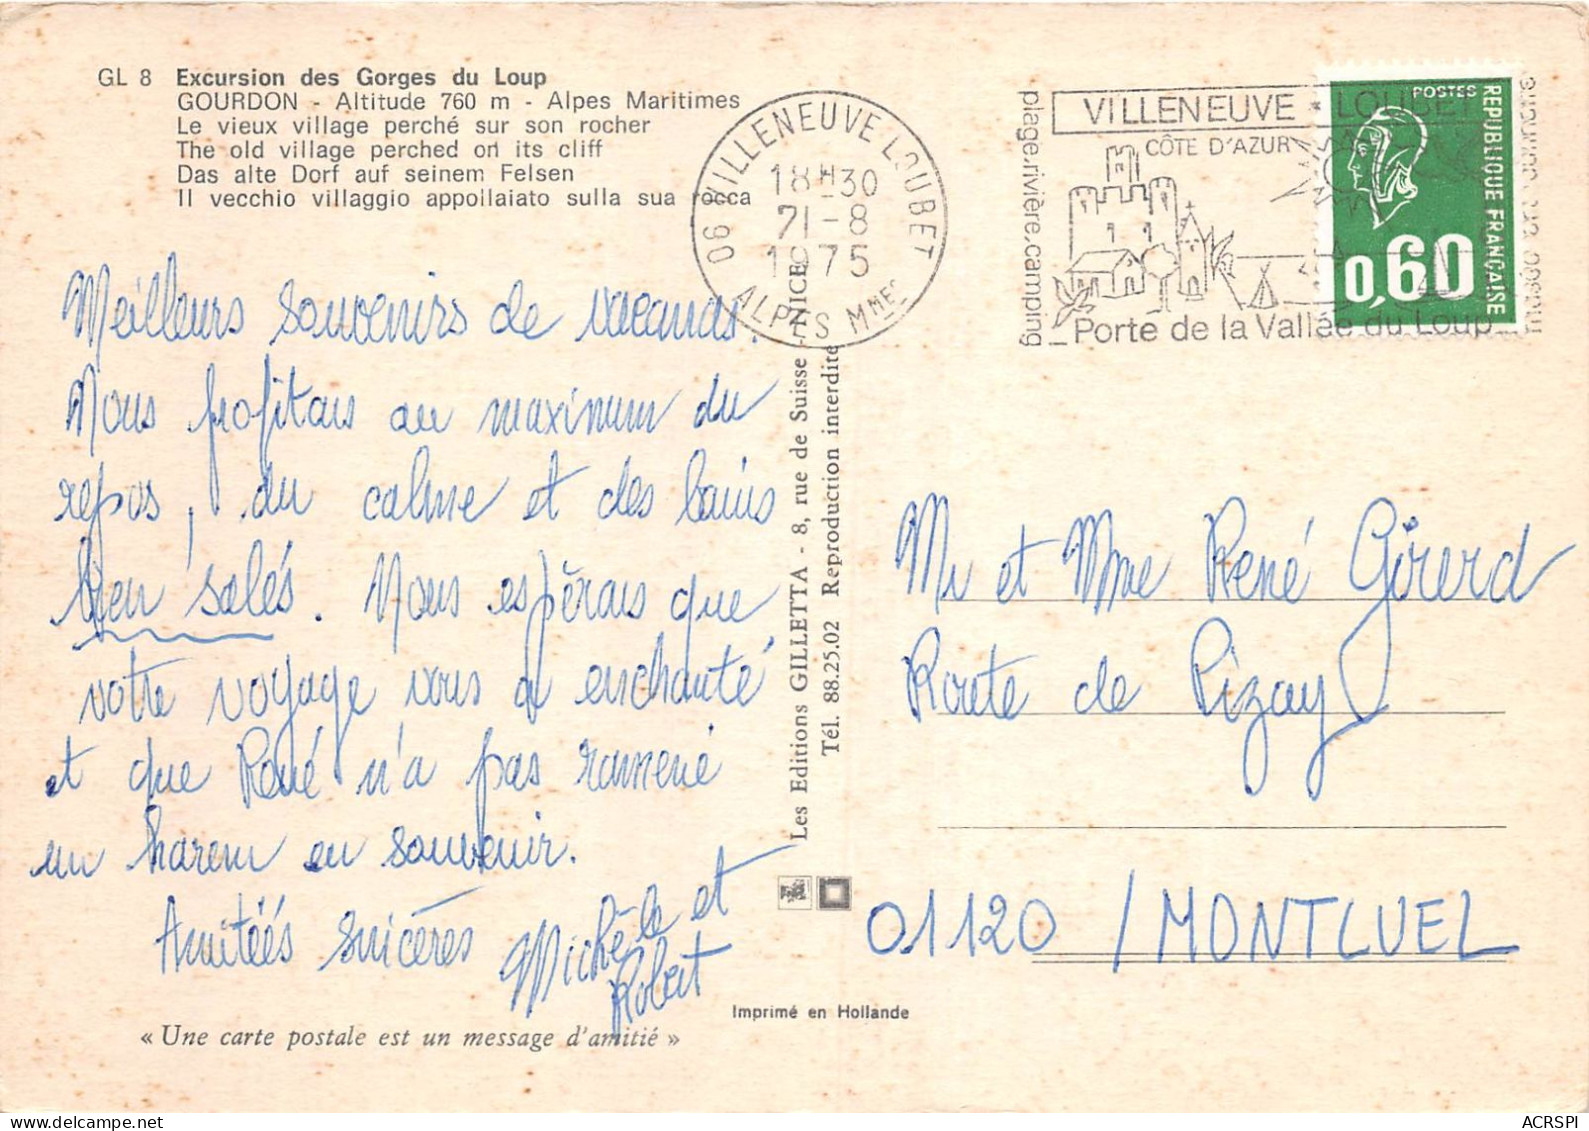 GL 8 Excursion des Gorges du Loup
GOURDON - Altitude 760 m - Alpes Maritimes
Le vieux village perché sur son rocher
The old village perched on its cliff
Das alte Dorf auf seinem Felsen
Il vecchio villaggio appollaiato sulla sua rocca
Meilleurs souvenirs de vacances.
Nous profitons au maximum du
repos, du calme et des bains
bien salés. Nous espérons que
votre voyage vous a enchanté
et que René n'a pas ramené
un harem en souvenir.
Amitiés sincères Michèle et
Robert
« Une carte postale est un message d'amitié »
06 VILLENEUVE LOUBET
18H30
21-8
1975
ALPES MMES
plage.rivière.camping
VILLENEUVE * LOUBET
CÔTE D'AZUR
Porte de la Vallée du Loup
POSTES
REPUBLIQUE FRANÇAISE
0,60
Les Editions GILLETTA - 8, rue de Suisse - NICE
Tél. 88.25.02 Reproduction interdite
Mr et Mme René Girerd
Route de Pizay
01120 / MONTLUEL
Imprimé en Hollande
ACRSPI